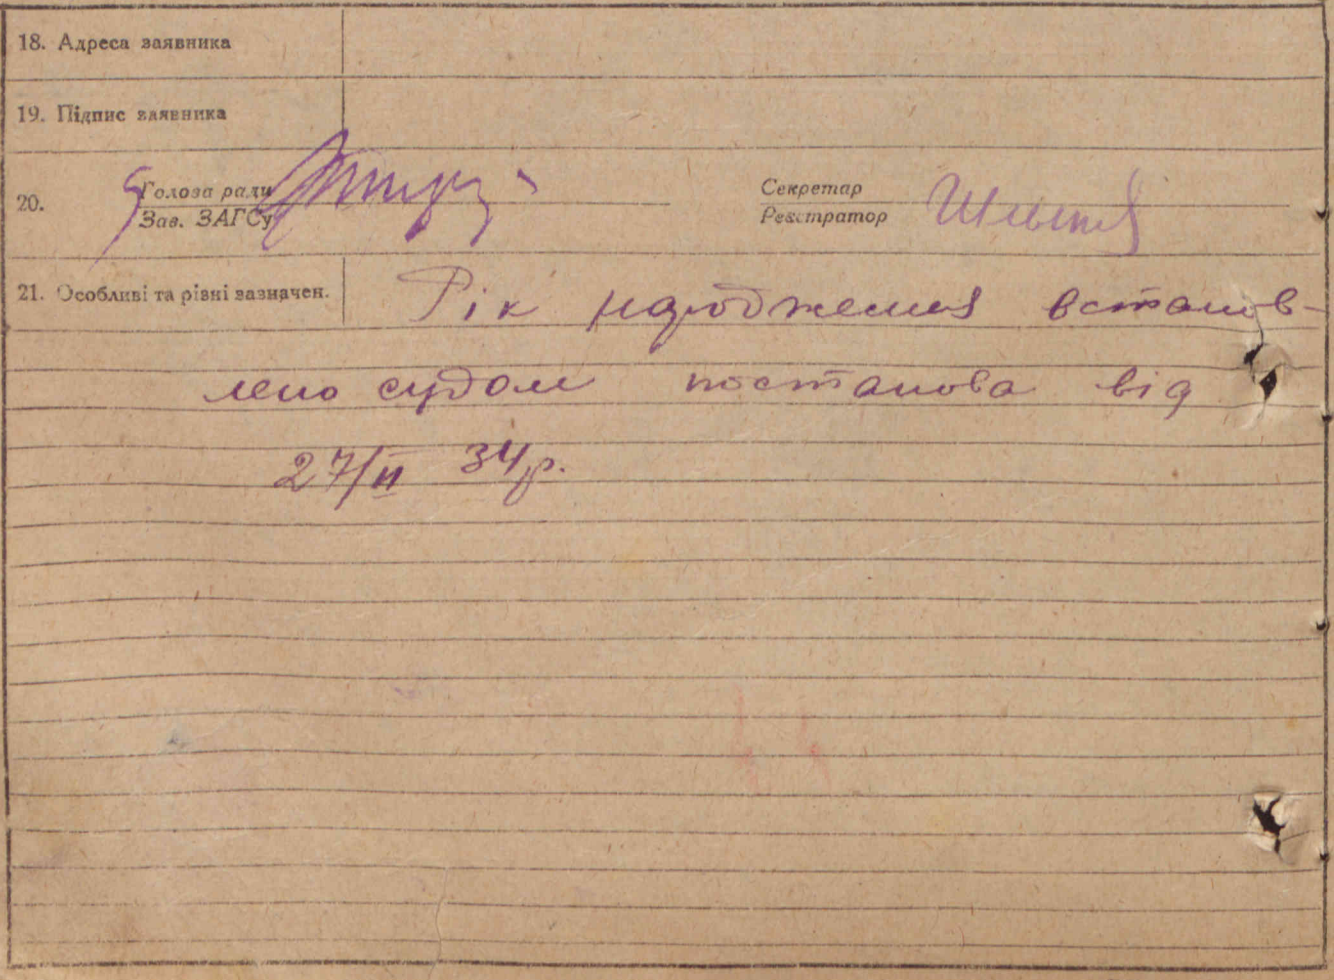 18. Адреса заявника
19. Підпис заявника
20.
Голова ради
Зав. ЗАГСу
Секретар
Реєстратор
21. Особливі та різні зазначен.
Рік народження встанов-
лено судом постанова від
27/II 34 р.